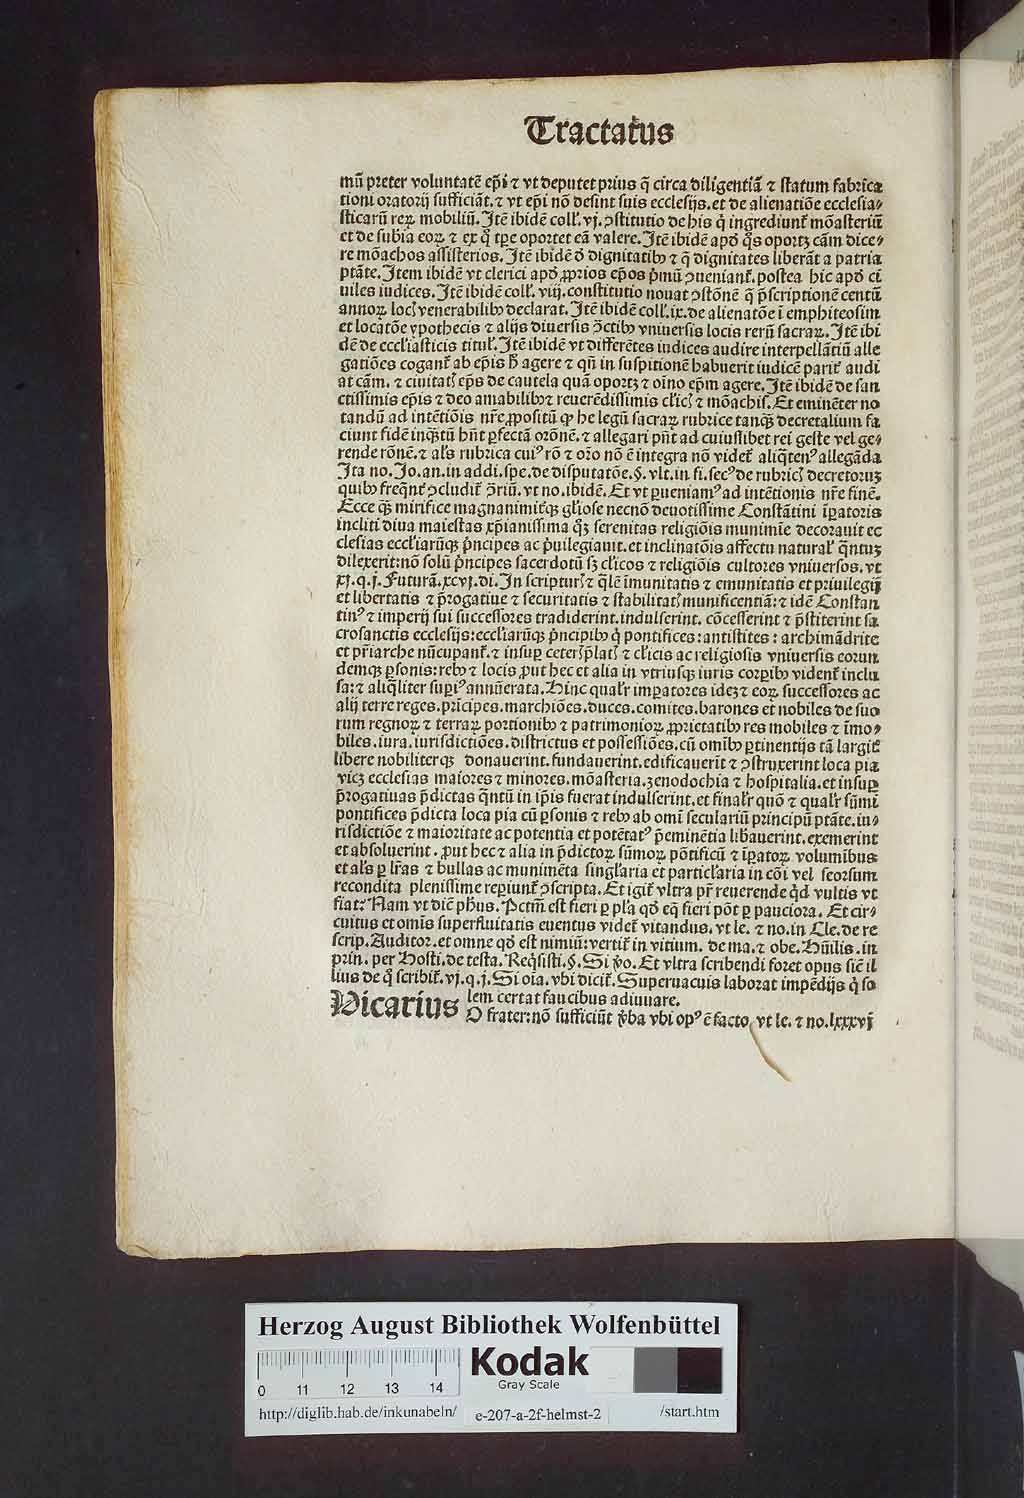 Tractatus
mū preter voluntatē ep̄i ⁊ vt deputet prius q̄ circa diligentiā ⁊ statum fabrica
tioni oratorij sufficiāt. ⁊ vt ep̄i nō desint suis ecclesijs. et de alienatiōe ecclesia⸗
sticarū reꝝ mobiliū. Itē ibidē coll̓. vj. ꝯstitutio de his q̇ ingrediunt̄ mōasteriū
et de subīa eoꝝ ⁊ ex q̇ tp̄e oportet eā valere. Itē ibidē apd̄ q̇s oportꝫ cām dice⸗
re mōachos assisterios. Itē ibidē d̄ dignitatibꝰ ⁊ q̄ dignitates liberāt a patria
ptāte. Item ibidē vt clerici apd̄ ꝓprios ep̄os p̄mū ꝯueniant̄. postea hic apd̄ ci
uiles iudices. Itē ibidē coll̓. viij. constitutio nouat ꝯstōnē q̄ p̄scriptionē centū
annoꝝ locꝭ venerabilibꝰ declarat. Itē ibidē coll̓. ix. de alienatōe ī emphiteosim
et locatōe ypothecis ⁊ alijs diuersis ꝯ̄ctibꝰ vniuersis locis rerū sacraꝝ. Itē ibi
dē de eccl̓iasticis titul̓. Itē ibidē vt differētes iudices audire interpellātiū alle
gatiōes cogant̄ ab ep̄is h̄ agere ⁊ qn̄ in suspitionē habuerit iudicē parit̄ audi
at cām. ⁊ ciuitatꝭ ep̄s de cautela quā oportꝫ ⁊ oīno ep̄m agere. Itē ibidē de san
ctissimis ep̄is ⁊ deo amabilibꝰ ⁊ reuerēdissimis cl̓icꝭ ⁊ mōachis. Et eminēter no
tandū ad intētiōis nr̄e ꝓpositū ꝙ he legū sacraꝝ rubrice tanq̄ꝫ decretalium fa
ciunt fidē inq̄ꝫtū hn̄t ꝑfectā orōnē. ⁊ allegari pn̄t ad cuiuslibet rei geste vel ge⸗
rende rōnē. ⁊ al̓s rubrica cuiꝰ rō ⁊ orō nō ē integra nō videt̄ aliq̄tenꝰ allegāda
Ita no. Jo. an. in addi. spe. de disputatōe. §. vlt. in fi. secꝰ de rubricꝭ decretoruꝫ
quibꝰ freq̄nt̄ ꝯcludit̄ ꝯ̄riū. vt no. ibidē. Et vt ꝑueniamꝰ ad intētionis nr̄e finē.
Ecce q̄ꝫ mirifice magnanimit̄qꝫ gl̓iose necnō deuotissime Constātini īꝑatoris
incliti diua maiestas xp̄ianissima q̄ꝫ serenitas religiōis munimīe decorauit ec
clesias eccl̓iarūqꝫ p̄ncipes ac p̄uilegiauit. et inclinatōis affectu natural̓ q̄ntuꝫ
dilexerit: nō solū p̄ncipes sacerdotū sꝫ cl̓icos ⁊ religiōis cultores vniuersos. vt
xj. q. j. Futurā. xcvj. di. In scripturꝭ ⁊ q̄lē īmunitatis ⁊ emunitatis et priuilegij
et libertatis ⁊ p̄rogatiue ⁊ securitatis ⁊ stabilitatꝭ munificentiā: ⁊ idē Constan
tinꝰ ⁊ imperij sui successores tradiderint. indulserint. cōcesserint ⁊ p̄stiterint sa
crosanctis ecclesijs: eccl̓iarūqꝫ p̄ncipibꝰ q̇ pontifices: antistites: archimādrite
et pr̄iarche nūcupant̄. ⁊ insuꝑ ceterꝭ p̄latꝭ ⁊ cl̓icis ac religiosis vniuersis eorun
demqꝫ ꝑsonis: rebꝰ ⁊ locis ꝓut hec et alia in vtriusqꝫ iuris corꝑibꝰ vident̄ inclu
sa: ⁊ aliq̄liter suꝑiꝰ annūerata. Hinc qual̓r imꝑatores idezꝫ ⁊ eoꝝ successores ac
alij terre reges. prīcipes. marchiōes. duces. comites. barones et nobiles de suo
rum regnoꝝ ⁊ terraꝝ portionibꝰ ⁊ patrimonioꝝ ꝓprietatibꝰ res mobiles ⁊ īmo⸗
biles. iura. iurisdictiōes. districtus et possessiōes. cū omībꝰ ꝑtinentijs tā largit̄
libere nobiliterqꝫ donauerint. fundauerint. edificauerīt ⁊ ꝯstruxerint loca pia
vicꝫ ecclesias maiores ⁊ minores. mōasteria. zenodochia ⁊ hospitalia. et insuꝑ
p̄rogatiuas p̄dictas q̄ntū in ip̄is fuerat indulserint. et final̓r quō ⁊ qual̓r sūmi
pontifices p̄dicta loca pia cū ꝑsonis ⁊ rebꝰ ab omī seculariū principū ptāte. iu⸗
risdictiōe ⁊ maioritate ac potentia et potētatꝰ p̄eminētia lib̄auerint. exemerint
et absoluerint. ꝓut hec ⁊ alia in p̄dictoꝝ sūmoꝝ pōtificū ⁊ īꝑatoꝝ voluminibus
et al̓s ꝑ lr̄as ⁊ bullas ac munimēta singl̓aria et particl̓aria in cōi vel seorsum
recondita plenissime reꝑiunt̄ ꝯscripta. Et igit̄ vltra pr̄ reuerende q̇d vultis vt
fiat: Nam vt dic̄ ph̄us. Pctm̄ est fieri ꝑ pl̓a qd̄ eq̄ fieri pōt ꝑ pauciora. Et cir⸗
cuitus et omīs superfluitatis euentus videt̄ vitandus. vt le. ⁊ no. in Cle. de re
scrip. Auditor. et omne qd̄ est nimiū: vertit̄ in vitium. de ma. ⁊ obe. Hūilis. in
prīn. per Hosti. de testa. Req̇sisti. §. Si v̄o. Et vltra scribendi foret opus sic̄ il
lius de q̇ scribit̄. vj. q. j. Si oīa. vbi dicit̄. Superuacuis laborat impēdijs q̇ so
lem certat faucibus adiuuare.
Vicarius O frater: nō sufficiūt v̄ba vbi opꝰ ē facto vt le. ⁊ no. lxxxvj
Herzog August Bibliothek Wolfenbüttel
Kodak
Gray Scale
0 11 12 13 14
http://diglib.hab.de/inkunabeln/ e-207-a-2f-helmst-2 /start.htm